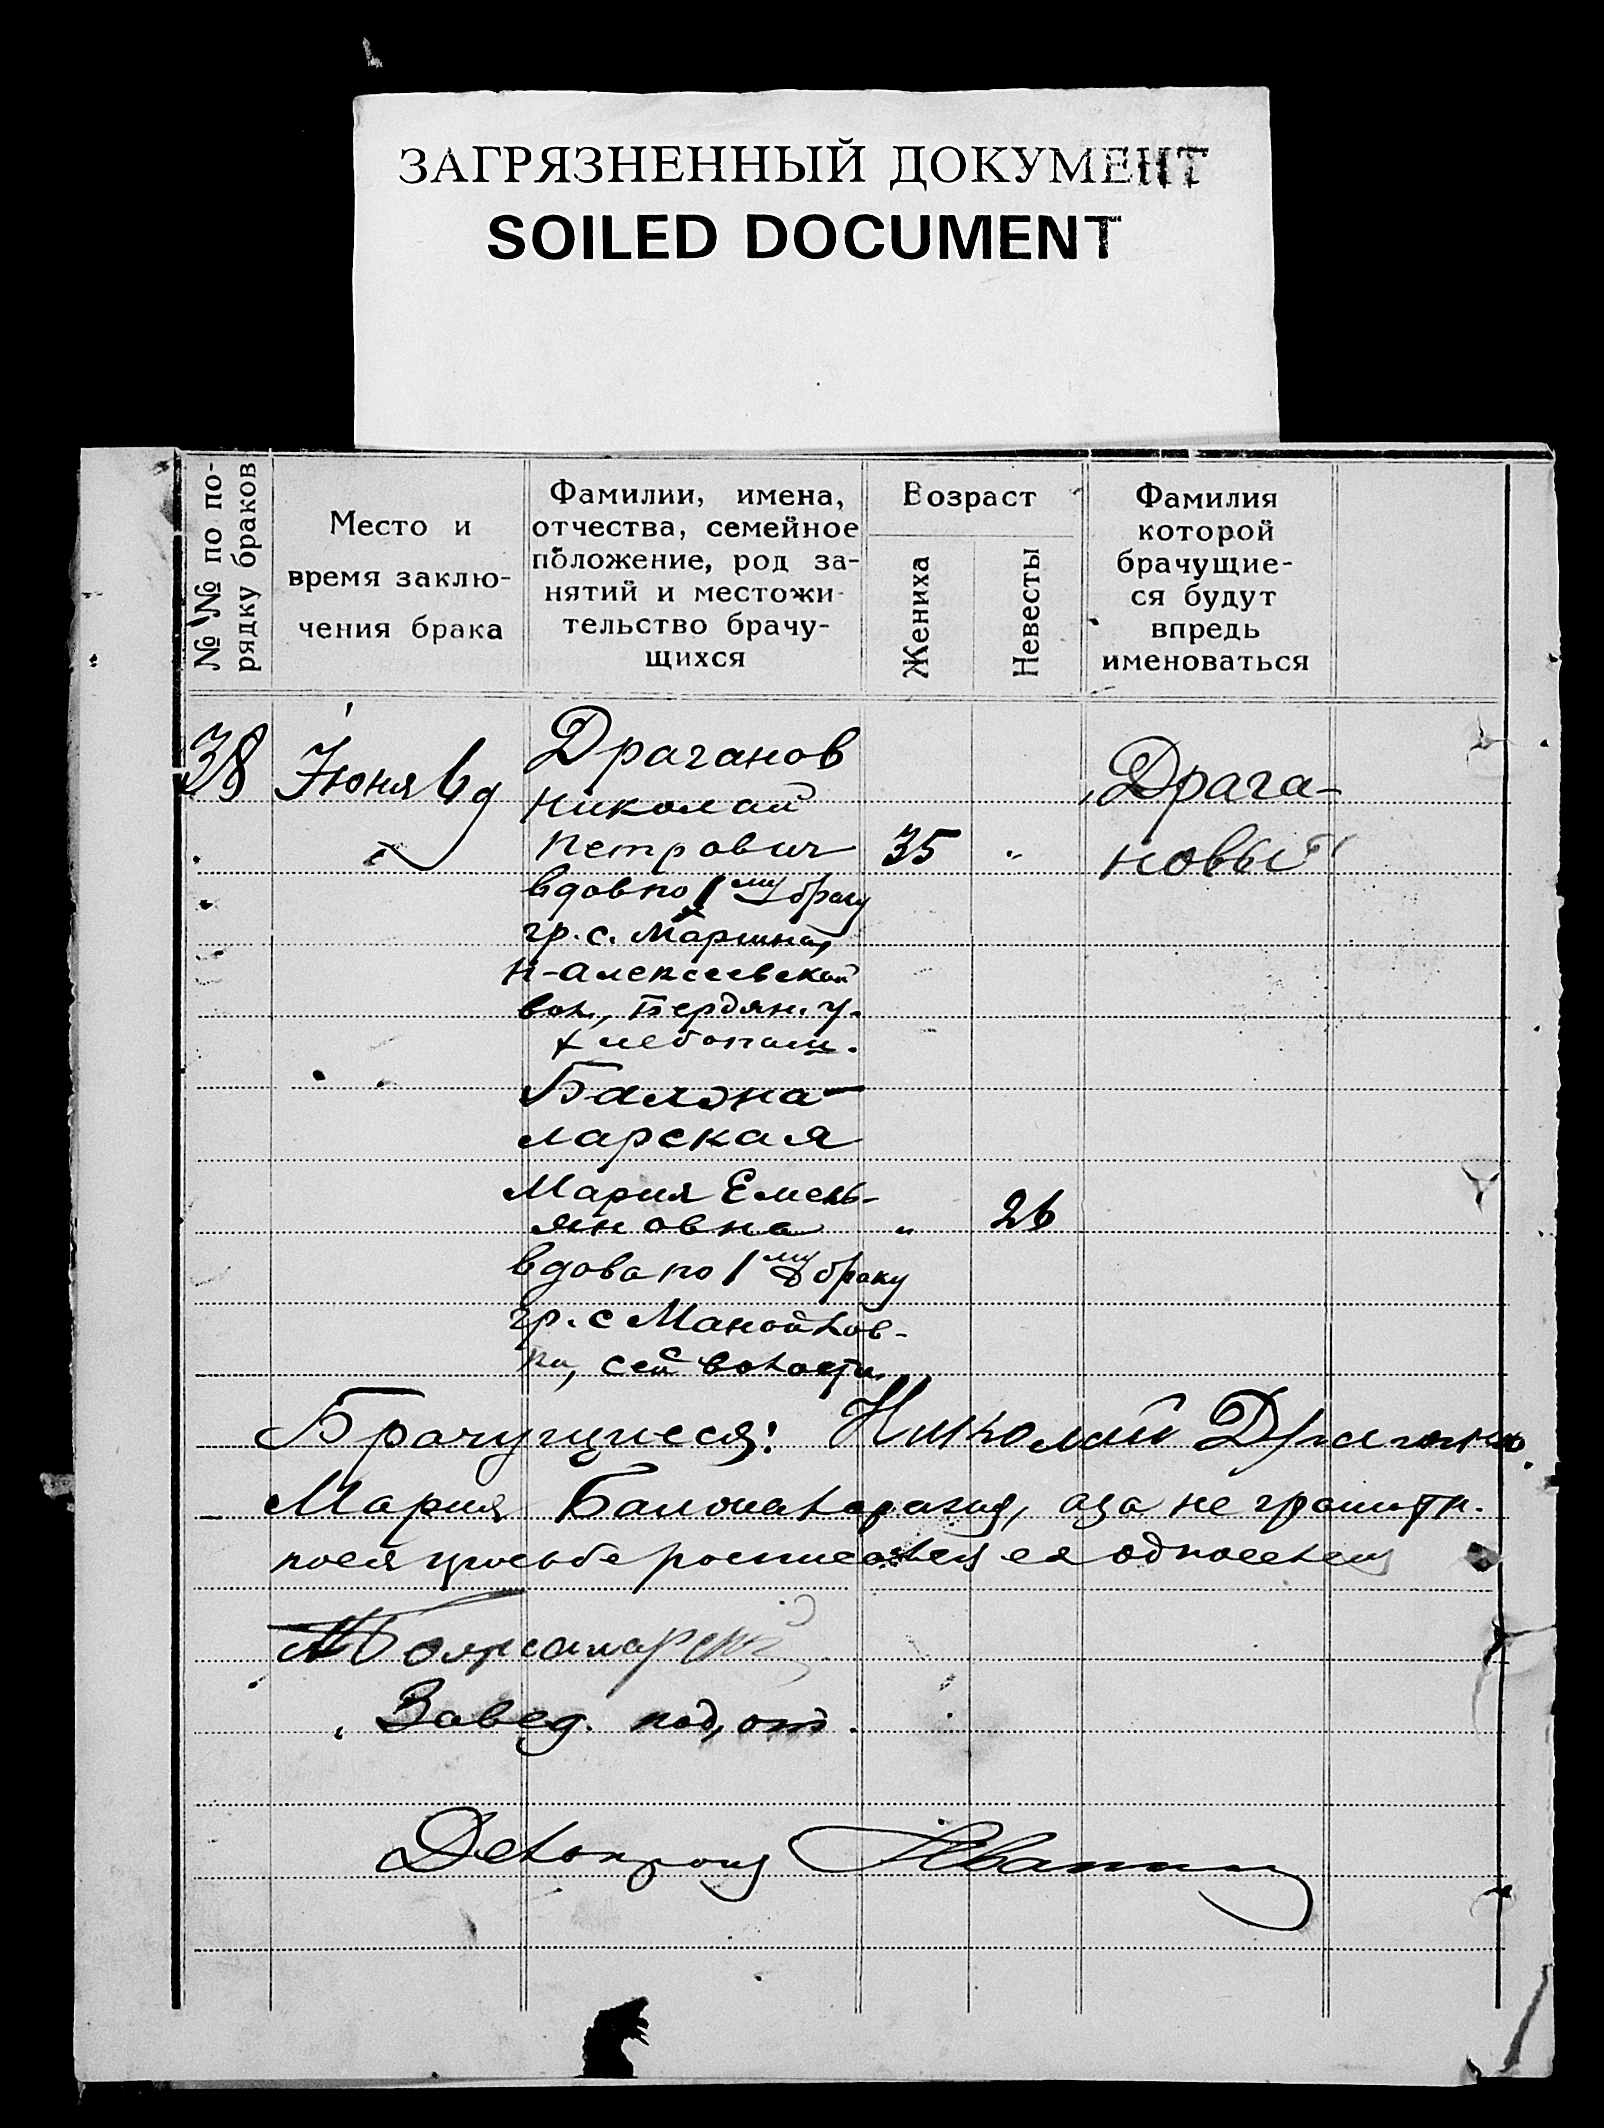 ЗАГРЯЗНЕННЫЙ ДОКУМЕНТ
SOILED DOCUMENT
№ № по по-
рядку браков
Место и
время заклю-
чения брака
Фамилии, имена,
отчества, семейное
положение, род за-
нятий и местожи-
тельство брачу-
щихся
Возраст
Жениха
Невесты
Фамилия
которой
брачущие-
ся будут
впредь
именоваться
38 Июня 6 д
Драганов
Николай
Петрович
35 "
Драга-
новы
вдов по 1му браку
гр. с.
Н-Алексеевской
вол., Бердян. у.
хлебопаш.
Балжа-
ларская
Мария Емель-
яновна
" 26
вдова по 1му браку
гр. с Манойлов-
ки, сей волости
Брачущиеся: Николай Драганов
Мария не грамотн.
росписался ея односелец
Завед. под, отд.
Делопроиз Иванн